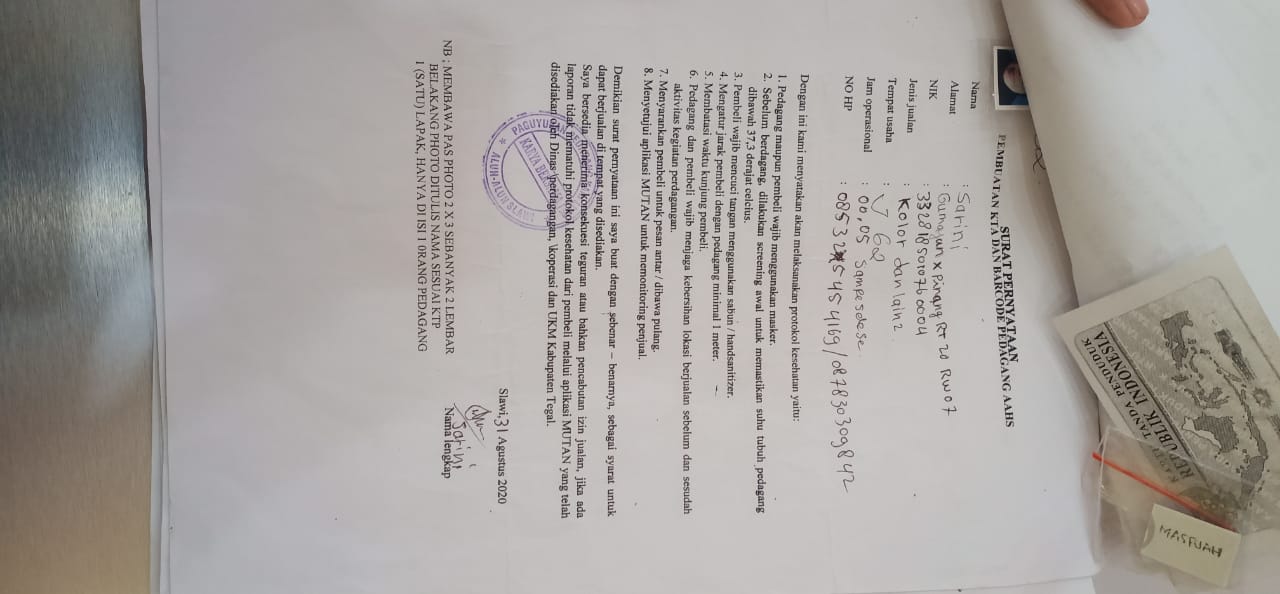 SURAT PERNYATAAN
PEMBUATAN KTA DAN BARCODE PEDAGANG AAHS
Nama : Sarini
Alamat : Gumayun x Pinang RT 20 RW 07
NIK : 3328185010760004
Jenis jualan : Kolor dan lain2
Tempat usaha : V 62
Jam operasional : 00,05 Sampe Selese
NO HP : 085325454169/087830309842
Dengan ini kami menyatakan akan melaksanakan protokol kesehatan yaitu:
1. Pedagang maupun pembeli wajib menggunakan masker.
2. Sebelum berdagang, dilakukan screening awal untuk memastikan suhu tubuh pedagang
dibawah 37,3 derajat celcius.
3. Pembeli wajib mencuci tangan menggunakan sabun / handsanitizer.
4. Mengatur jarak pembeli dengan pedagang minimal 1 meter.
5. Membatasi waktu kunjung pembeli.
6. Pedagang dan pembeli wajib menjaga kebersihan lokasi berjualan sebelum dan sesudah
aktivitas kegiatan perdagangan.
7. Menyarankan pembeli untuk pesan antar / dibawa pulang.
8. Menyetujui aplikasi MUTAN untuk memonitoring penjual.
Demikian surat pernyataan ini saya buat dengan sebenar – benarnya, sebagai syarat untuk
dapat berjualan di tempat yang disediakan.
Saya bersedia menerima konsekuesi teguran atau bahkan pencabutan izin jualan, jika ada
laporan tidak mematuhi protokol kesehatan dari pembeli melalui aplikasi MUTAN yang telah
disediakan oleh Dinas perdagangan, \koperasi dan UKM Kabupaten Tegal.
ALUN-ALUN SLAWI
Slawi, 31 Agustus 2020
Sarini
Nama lengkap
NB : MEMBAWA PAS PHOTO 2 X 3 SEBANYAK 2 LEMBAR
BELAKANG PHOTO DITULIS NAMA SESUAI KTP
1 (SATU) LAPAK, HANYA DI ISI 1 ORANG PEDAGANG
KARTU TANDA PENDUDUK
REPUBLIK INDONESIA
MASFUAH